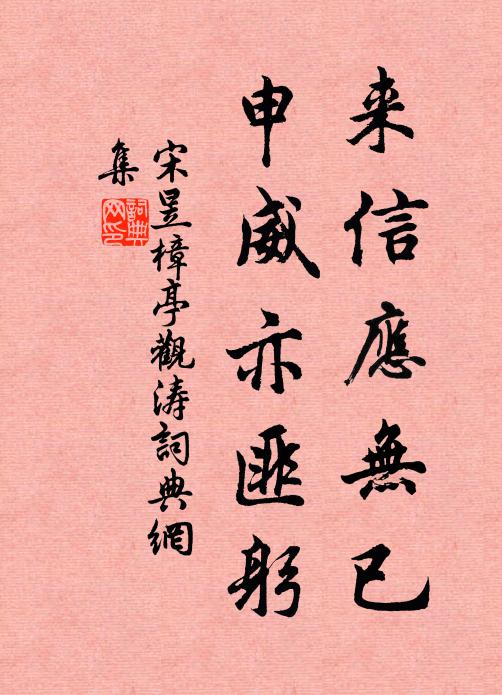 来信應無已
申威亦匪躬
宋昱樟亭觀涛詞典網
集
詞典網印